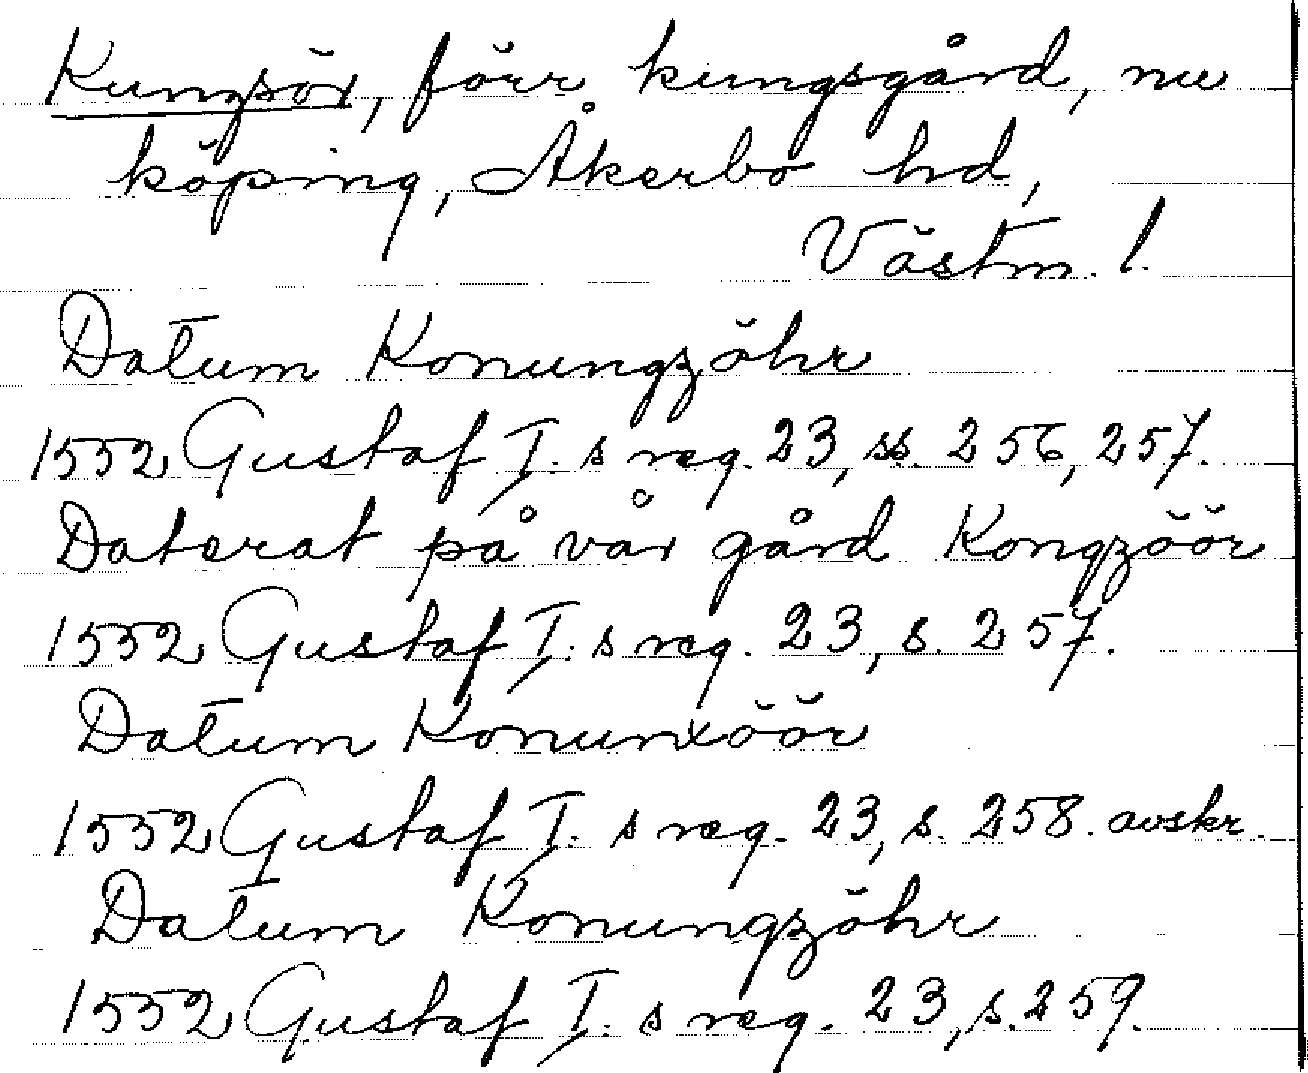 Kungsör, förr kungsgård, nu
köping, Åkerbo hd,
Västm. l.
Datum Konungzöhr
1552 Gustaf I.s reg. 23, ss. 256, 257.
Daterat på vår gård Kongzöör
1552 Gustaf I.s reg. 23, s. 257.
Datum Konunxöör
1552 Gustaf I.s reg. 23, s. 258. avskr.
Datum Konungzöhr
1552 Gustaf I.s reg. 23, s. 259.